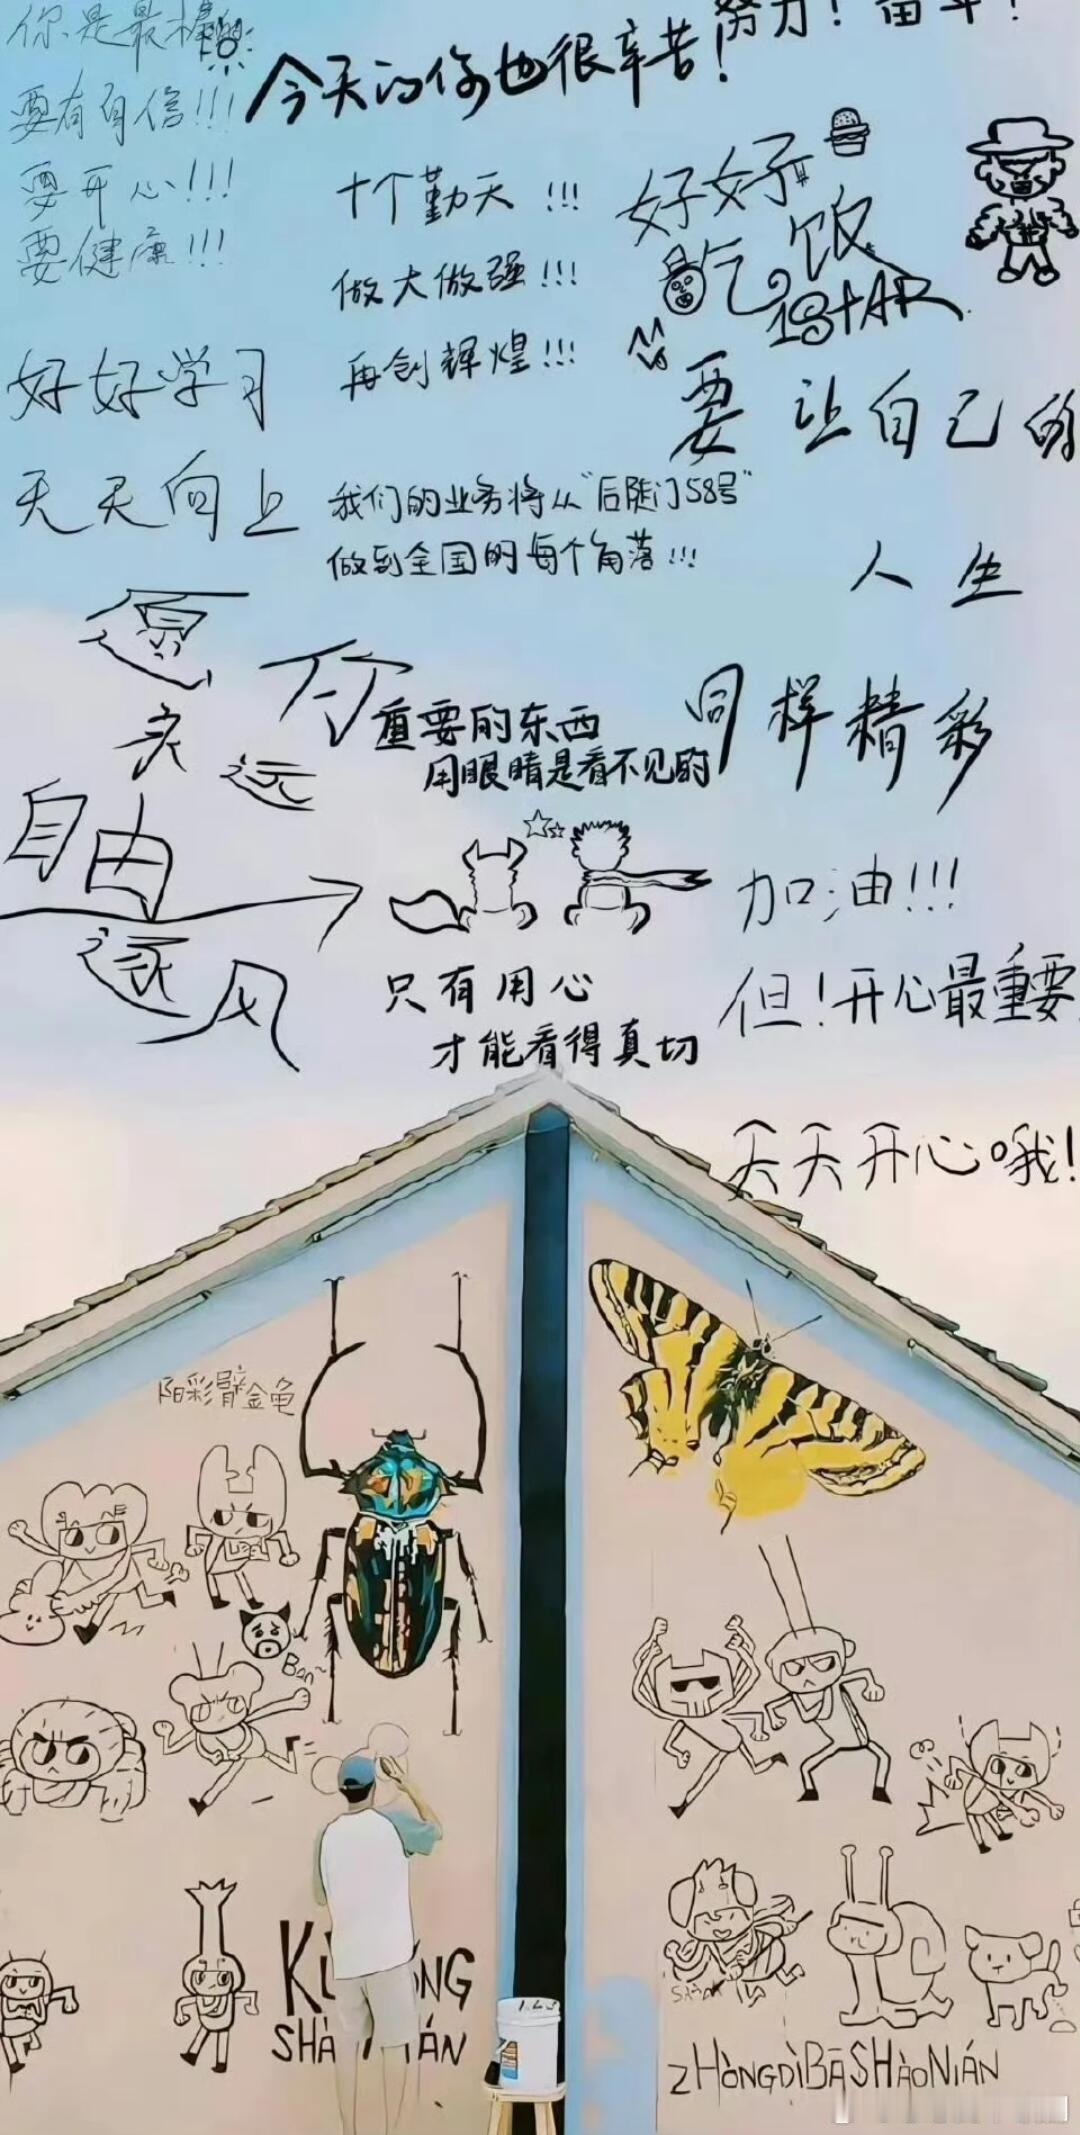 你是最棒的
要有自信!!!
要开心!!!
要健康!!!
今天的你也很辛苦!
努力!奋斗!
十个勤天!!!
做大做强!!!
再创辉煌!!!
好好
吃饭
1STAR
好好学习
天天向上
我们的业务将从"后陡门58号"
做到全国的每个角落!!!
要让自己的
人生
同样精彩
加油!!!
但!开心最重要
天天开心哦!
愿你
永远
自由
逐风
重要的东西
用眼睛是看不见的
只有用心
才能看得真切
阳彩臂金龟
Ban~
SHÀ
ÁN
ZHÒNGDÌBĀSHÀONIÁN